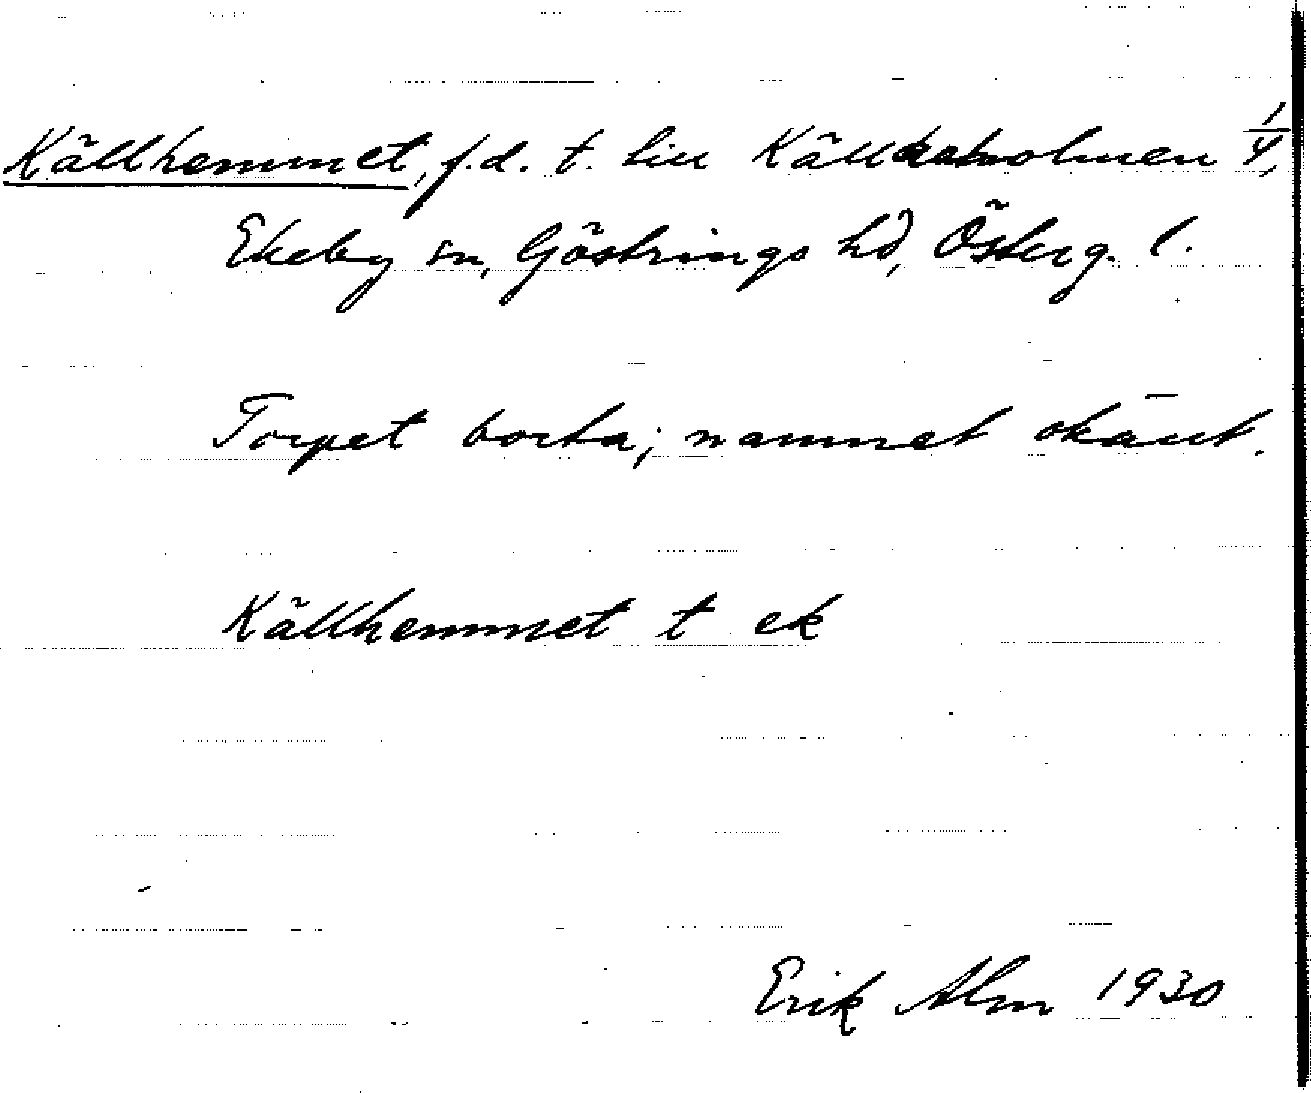 Källhemmet, f.d. t. till Källsholmen 1/4,
Ekeby sn, Göstrings hd, Österg. l.
Torpet borta; namnet okänt.
Källhemmet t ek
Erik Alm 1930